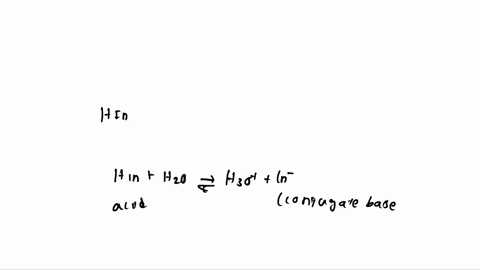 HIn
HIn + H2O ⇌ H3O+ + In-
acid (conjugate base